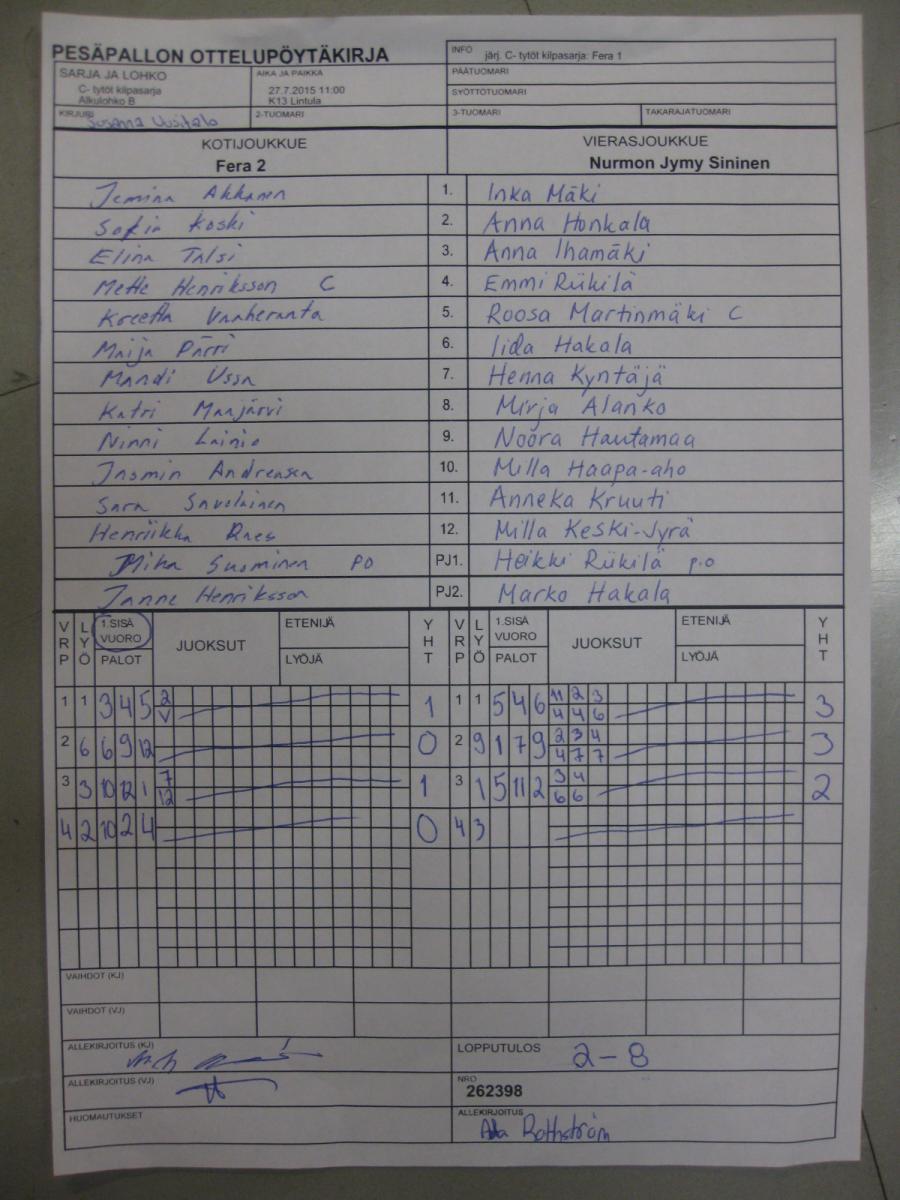 PESÄPALLON OTTELUPÖYTÄKIRJA
INFO järj. C- tytöt kilpasarja: Fera 1
SARJA JA LOHKO
C- tytöt kilpasarja
Alkulohko B
AIKA JA PAIKKA
27.7.2015 11:00
K13 Lintula
PÄÄTUOMARI
SYÖTTÖTUOMARI
KIRJURI Susanna Uusitalo
2-TUOMARI
3-TUOMARI
TAKARAJATUOMARI
KOTIJOUKKUE
Fera 2
VIERASJOUKKUE
Nurmon Jymy Sininen
Jemina Akkanen 1. Inka Mäki
Sofia Koski 2. Anna Honkala
Elina Talsi 3. Anna Ihamäki
Mette Henriksson C 4. Emmi Riikilä
Kreetta Vaaheranta 5. Roosa Martinmäki C
Maija Pärri 6. Iida Hakala
Mandi Ussa 7. Henna Kyntäjä
Katri Maajärvi 8. Mirja Alanko
Ninni Lainio 9. Noora Hautamaa
Jasmin Andreasen 10. Milla Haapa-aho
Sara Savolainen 11. Anneka Kruuti
Henriikka 12. Milla Keski-Jyrä
Mika Suominen PO PJ1. Heikki Riikilä p.o
Janne Henriksson PJ2. Marko Hakala
VRP LYÖ 1.SISÄ VUORO PALOT JUOKSUT ETENIJÄ LYÖJÄ YHT VRP LYÖ 1.SISÄ VUORO PALOT JUOKSUT ETENIJÄ LYÖJÄ YHT
1 1 3 4 5 2 V 1 1 1 5 4 6 11 2 3 4 4 6 3
2 6 6 9 12 0 2 9 1 7 9 2 3 4 4 7 7 3
3 3 10 12 1 7 12 1 3 1 5 11 2 3 4 6 6 2
4 2 10 2 4 0 4 3
VAIHDOT (KJ)
VAIHDOT (VJ)
ALLEKIRJOITUS (KJ)
LOPPUTULOS 2-8
ALLEKIRJOITUS (VJ)
NRO
262398
HUOMAUTUKSET
ALLEKIRJOITUS
Rothström